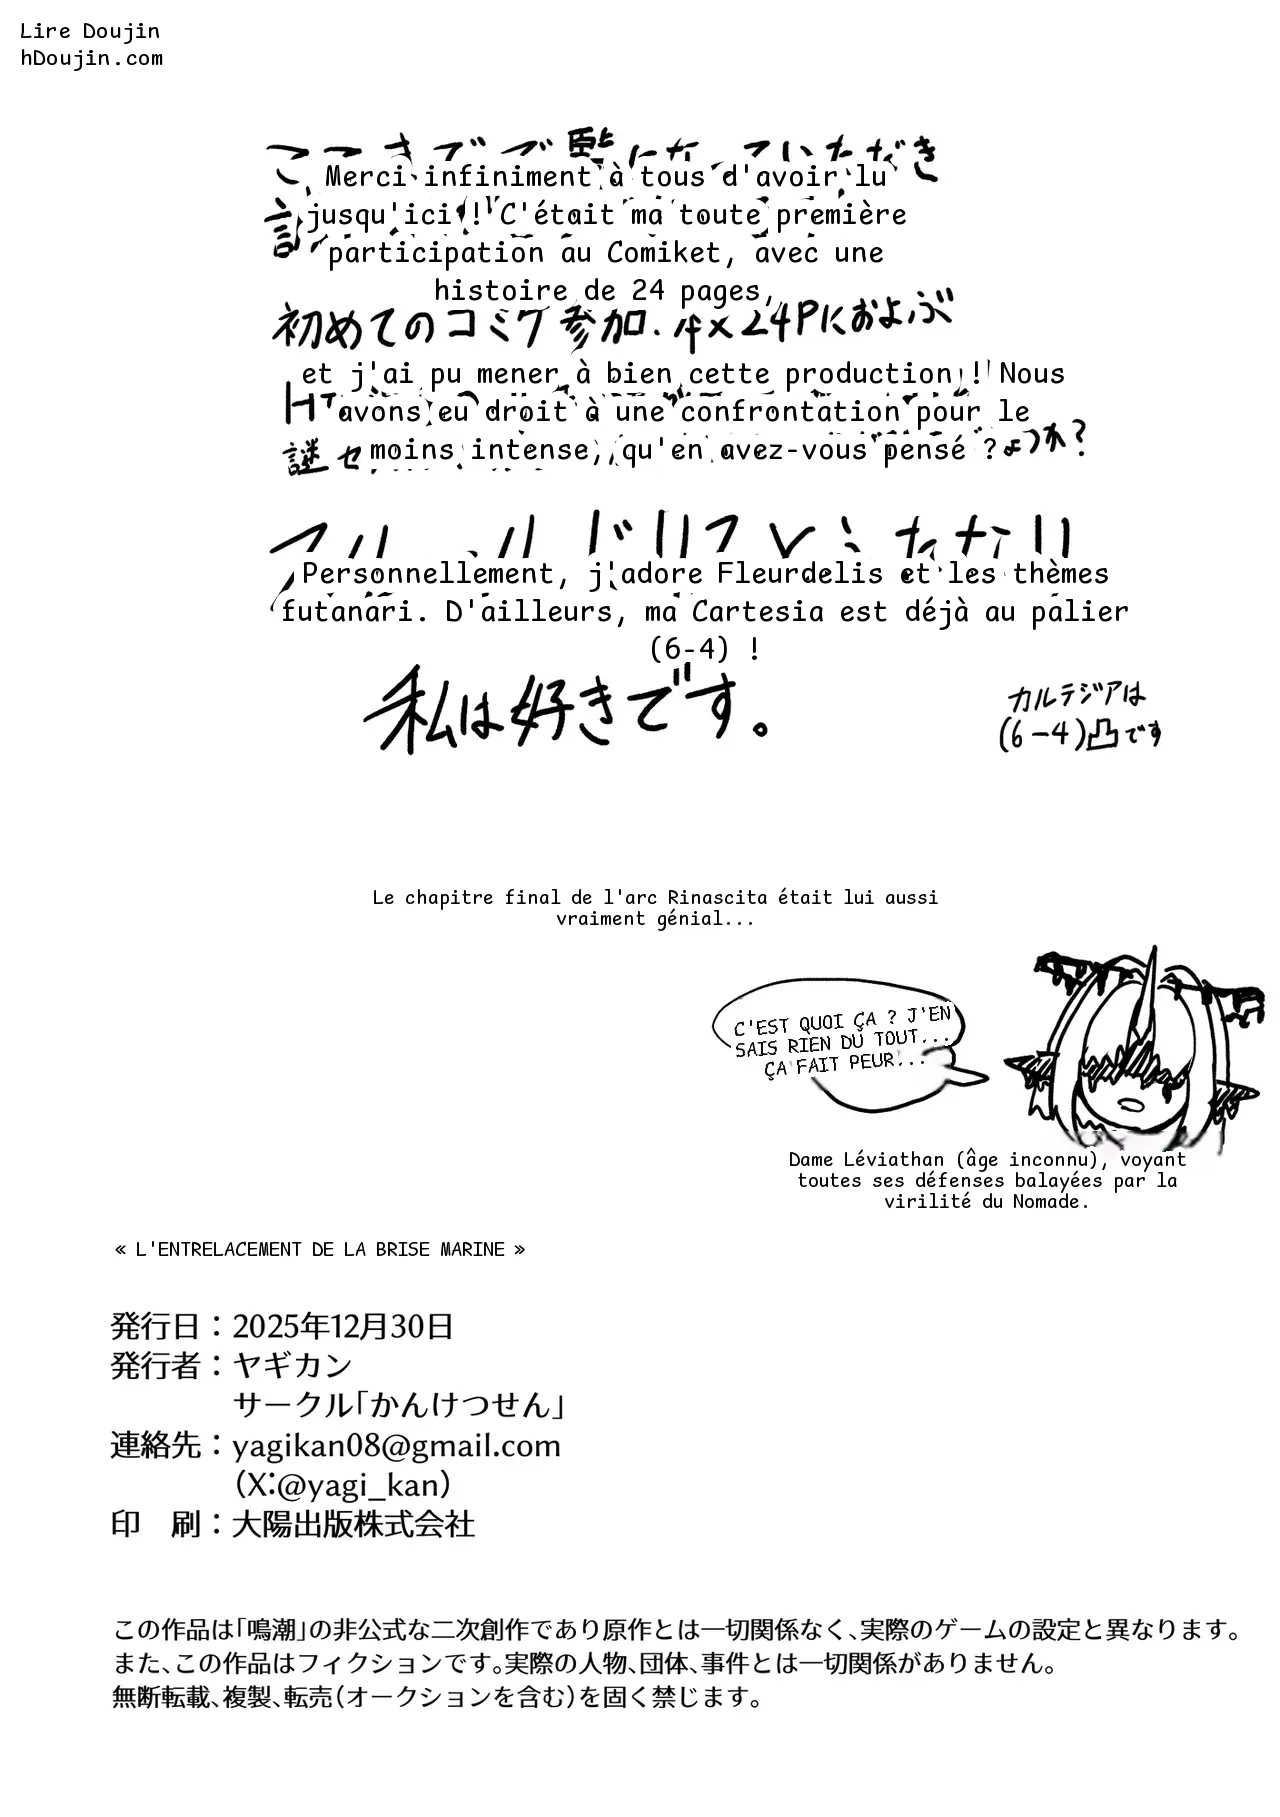 Lire Doujin
hDoujin.com
Merci infiniment à tous d'avoir lu
jusqu'ici ! C'était ma toute première
participation au Comiket, avec une
histoire de 24 pages,
初めてのコミケ参加.4x24Pにおよぶ
et j'ai pu mener à bien cette production ! Nous
avons eu droit à une confrontation pour le
moins intense, qu'en avez-vous pensé ?
Personnellement, j'adore Fleurdelis et les thèmes
futanari. D'ailleurs, ma Cartesia est déjà au palier
(6-4) !
私は好きです。
カルテジアは
(6-4)凸です
Le chapitre final de l'arc Rinascita était lui aussi
vraiment génial...
C'EST QUOI ÇA ? J'EN
SAIS RIEN DU TOUT...
ÇA FAIT PEUR...
Dame Léviathan (âge inconnu), voyant
toutes ses défenses balayées par la
virilité du Nomade.
« L'ENTRELACEMENT DE LA BRISE MARINE »
発行日：2025年12月30日
発行者：ヤギカン
サークル「かんけつせん」
連絡先：yagikan08@gmail.com
（X:@yagi_kan）
印　刷：大陽出版株式会社
この作品は「鳴潮」の非公式な二次創作であり原作とは一切関係なく、実際のゲームの設定と異なります。
また、この作品はフィクションです。実際の人物、団体、事件とは一切関係がありません。
無断転載、複製、転売（オークションを含む）を固く禁じます。